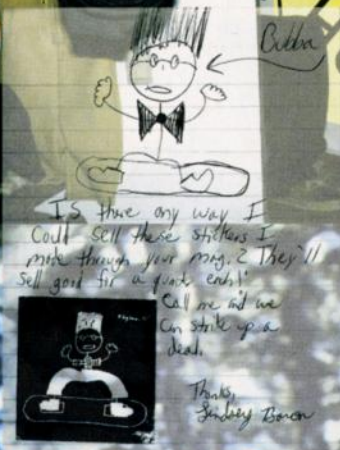 Bubba
Is there any way I
could sell these stickers I
made through your mag.? They'll
sell good for a quarter each!
Call me and we
can strike up a
deal.
Thanks,
Lindsey Baron